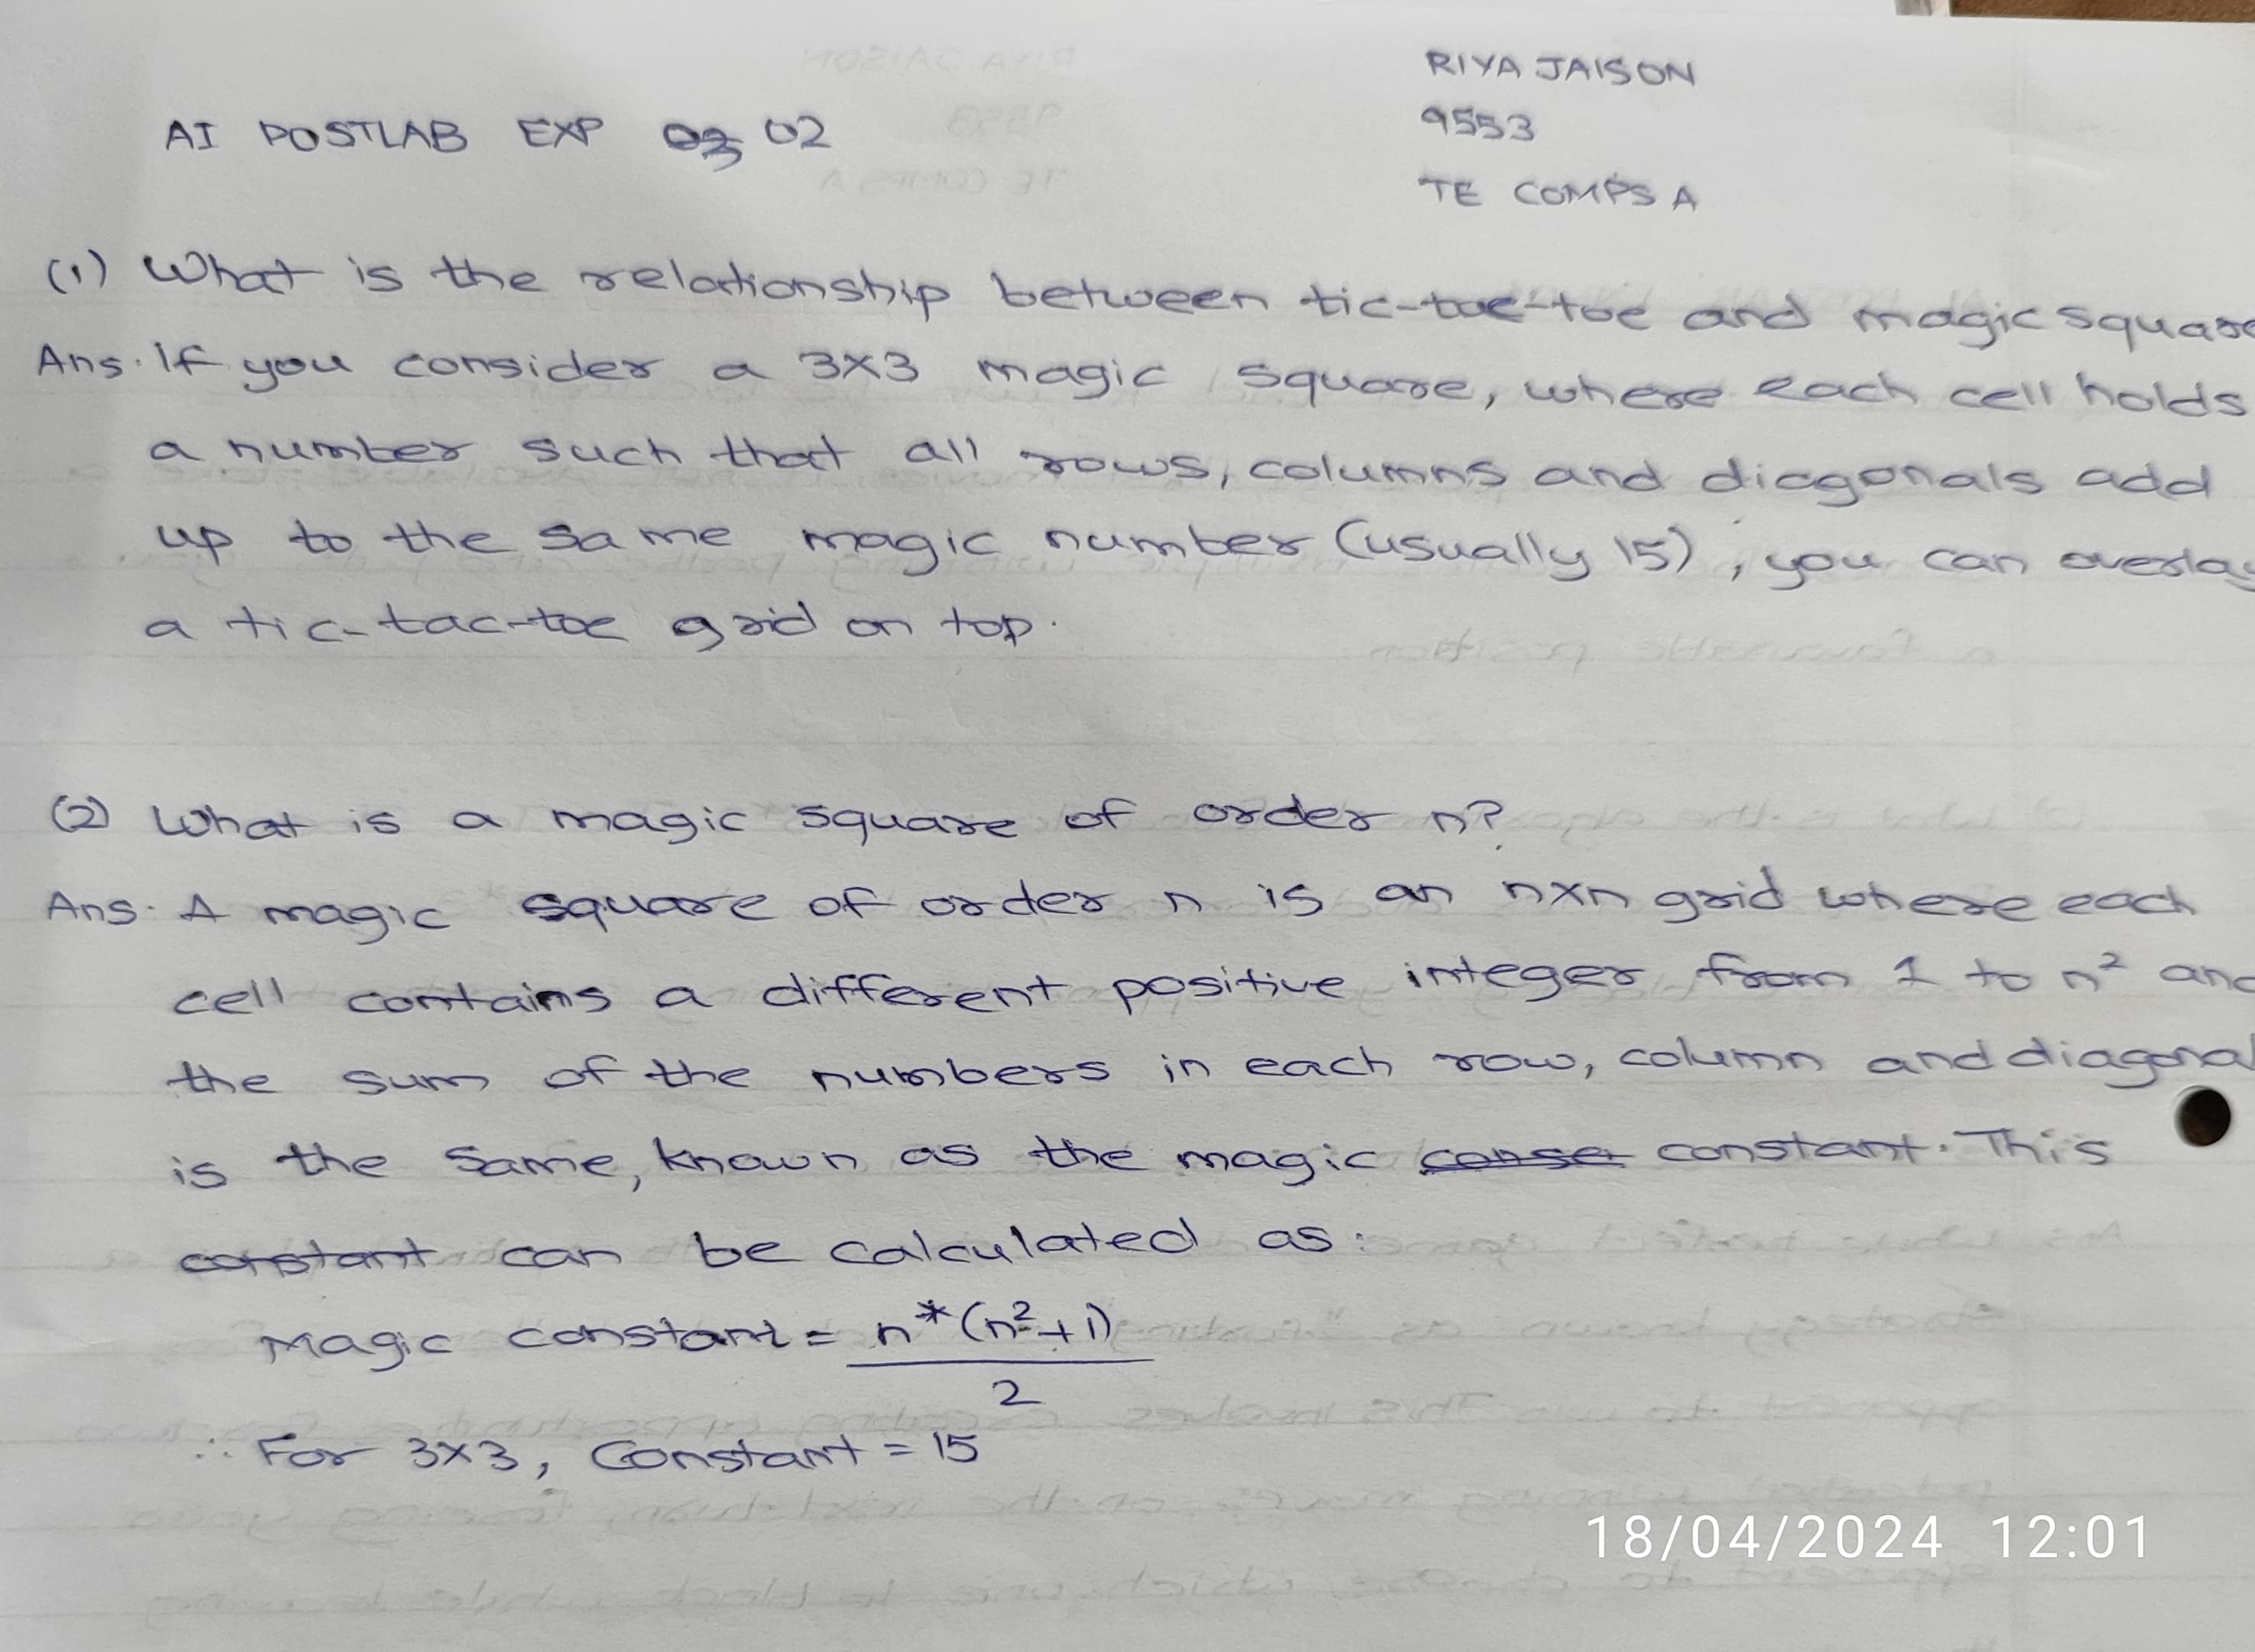 RIYA JAISON
9553
AI POSTLAB EXP 02
TE COMPS A
(1) What is the relationship between tic-tac-toe and magic square
Ans. If you consider a 3x3 magic square, where each cell holds
a number such that all rows, columns and diagonals add
up to the same magic number (usually 15), you can overlay
a tic-tac-toe grid on top.
(2) What is a magic square of order n?
Ans. A magic square of order n is an nxn grid where each
cell contains a different positive integer from 1 to n² and
the sum of the numbers in each row, column and diagonal
is the same, known as the magic constant. This
constant can be calculated as:
Magic constant = n*(n²+1)
2
∴ For 3x3, Constant = 15
18/04/2024 12:01